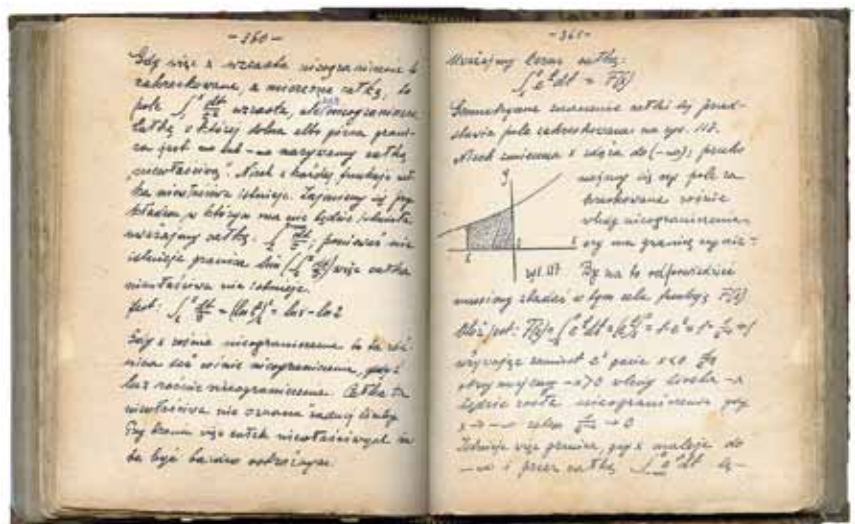 - 360 -
Gdy więc x wzrasta nieograniczenie to
zakreskowane, a mierzone całką, to
pole ∫ dt/t² wzrasta, nieograniczenie
Całkę z której dolna albo górna grani-
ca jest ∞ lub -∞ nazywamy całką
„niewłaściwą". Niech z każdej funkcji cał-
ka niewłaściwa istnieje. Zajmiemy się przy
kładem, w którym ona nie będzie istniała
uważajmy całkę: ∫ dt/t, ponieważ nie
istnieje granica lim (∫ dt/t) więc całka
niewłaściwa nie istnieje.
Jest: ∫ dt/t = (ln t) = ln x - ln 2
Gdy x rośnie nieograniczenie to ta róż-
nica też rośnie nieograniczenie, gdyż
ln x rośnie nieograniczenie. Całka ta
niewłaściwa nie oznacza żadnej liczby.
Przy braniu więc całek niewłaściwych trze
ba być bardzo ostrożnym.
- 361 -
Uważajmy teraz całkę:
∫ eᵗdt = F(x)
Geometryczne znaczenie całki tej przed-
stawia pole zakreskowane na rys. 117.
Niech zmienna x zdąża do (-∞); przeko
y
najmy się czy pole za
kreskowane rośnie
wtedy nieograniczenie,
czy ma granicę wynie-
x
rys. 117
By na to odpowiedzieć
musimy zbadać w tym celu funkcję F(x)
Otóż jest: F(x) = ∫ eᵗdt = (eᵗ) =
używając zamiast
otrzymujemy -x>0 wtedy liczba -x
będzie rosła nieograniczenie gdy
x → -∞ zatem → 0
Istnieje więc granica, gdy x maleje do
-∞ i przez całkę ∫ eᵗdt